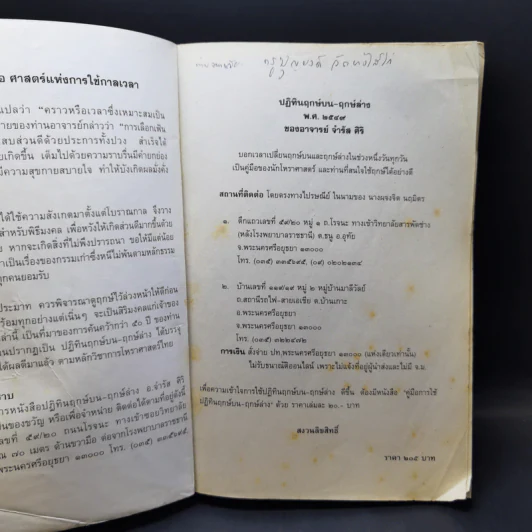 อ ศาสตร์แห่งการใช้กาลเวลา
แปลว่า "คราวหรือเวลาซึ่งเหมาะสมเป็น
ายของท่านอาจารย์กล่าวว่า "การเลือกเฟ้น
สบส่วนดีด้วยประการทั้งปวง สำเร็จได้
ยเกิดขึ้น เต็มไปด้วยความราบรื่นมีค่ายกย่อง
มีความสุขกายสบายใจ ทำให้บังเกิดผลมั่งคั่ง
ได้ใช้ความสังเกตมาตั้งแต่โบราณกาล จึงวาง
สำหรับพิธีมงคล เพื่อหวังให้เกิดส่วนดีมากขึ้นด้วย
ง หากจะเกิดสิ่งที่ไม่พึงปรารถนา ขอให้มีแต่น้อย
าเป็นเรื่องของกรรมเก่าซึ่งหนีไม่พ้นตามหลักธรรม
ทุกคนยอมรับ
ประมาท ควรพิจารณาดูฤกษ์ไว้ล่วงหน้าให้ดีก่อน
ร้อมทุกอย่างแต่เนิ่นๆ จะเป็นสิริมงคลแก่เจ้าของ
ล่านี้ เป็นที่มาของการค้นคว้ากว่า ๕๐ ปี ของท่าน
นปรากฏเป็น ปฏิทินฤกษ์บน-ฤกษ์ล่าง
ได้ผลดีมาแล้ว ตามหลักวิชาการโหราศาสตร์ไทย
าบ
การหนังสือปฏิทินฤกษ์บน-ฤกษ์ล่าง อ.จำรัส ศิริ
ป็นของขวัญ หรือเพื่อจำหน่าย ติดต่อได้ตามที่อยู่ดังนี้
ลขที่ ๕๙/๒๐ ถนนโรจนะ ทางเข้าซอยวิทยาลัย
ณ ๗๐ เมตร ด้านขวามือ ต่อจากโรงพยาบาลราชธานี
พระนครศรีอยุธยา ๑๓๐๐๐ โทร. (๐๓๕) ๓๓๕๖๙๕,
ปฏิทินฤกษ์บน-ฤกษ์ล่าง
พ.ศ. ๒๕๔๙
ของอาจารย์ จำรัส ศิริ
บอกเวลาเปลี่ยนฤกษ์บนและฤกษ์ล่างในช่วงหนึ่งวันทุกวัน
เป็นคู่มือของนักโหราศาสตร์ และท่านที่สนใจใช้ฤกษ์ได้อย่างดี
สถานที่ติดต่อ โดยตรงทางไปรษณีย์ ในนามของ นางผจงจิต นฤมิตร
๑. ตึกแถวเลขที่ ๕๙/๒๐ หมู่ ๑ ถ.โรจนะ ทางเข้าวิทยาลัยสารพัดช่าง
(หลังโรงพยาบาลราชธานี) ต.ธนู อ.อุทัย
จ.พระนครศรีอยุธยา ๑๓๐๐๐
โทร. (๐๓๕) ๓๓๕๖๙๕, (๐๙) ๐๒๐๒๑๓๔
๒. บ้านเลขที่ ๑๑๙/๑๕ หมู่ ๒ หมู่บ้านมาลีวัลย์
ถ.สถานีรถไฟ-สายเอเชีย ต.บ้านเกาะ
อ.พระนครศรีอยุธยา
จ.พระนครศรีอยุธยา ๑๓๐๐๐
โทร. (๐๓๕) ๓๒๒๕๗๒
การเงิน สั่งจ่าย ปท.พระนครศรีอยุธยา ๑๓๐๐๐ (แห่งเดียวเท่านั้น)
ไม่รับธนาณัติออนไลน์ เพราะไม่แจ้งชื่อผู้นำส่งและไม่มี จ.ม.
เพื่อความเข้าใจการใช้ปฏิทินฤกษ์บน-ฤกษ์ล่าง ดีขึ้น ต้องมีหนังสือ "คู่มือการใช้
ปฏิทินฤกษ์บน-ฤกษ์ล่าง" ด้วย ราคาเล่มละ ๒๐.- บาท
สงวนลิขสิทธิ์
ราคา ๒๐๕ บาท